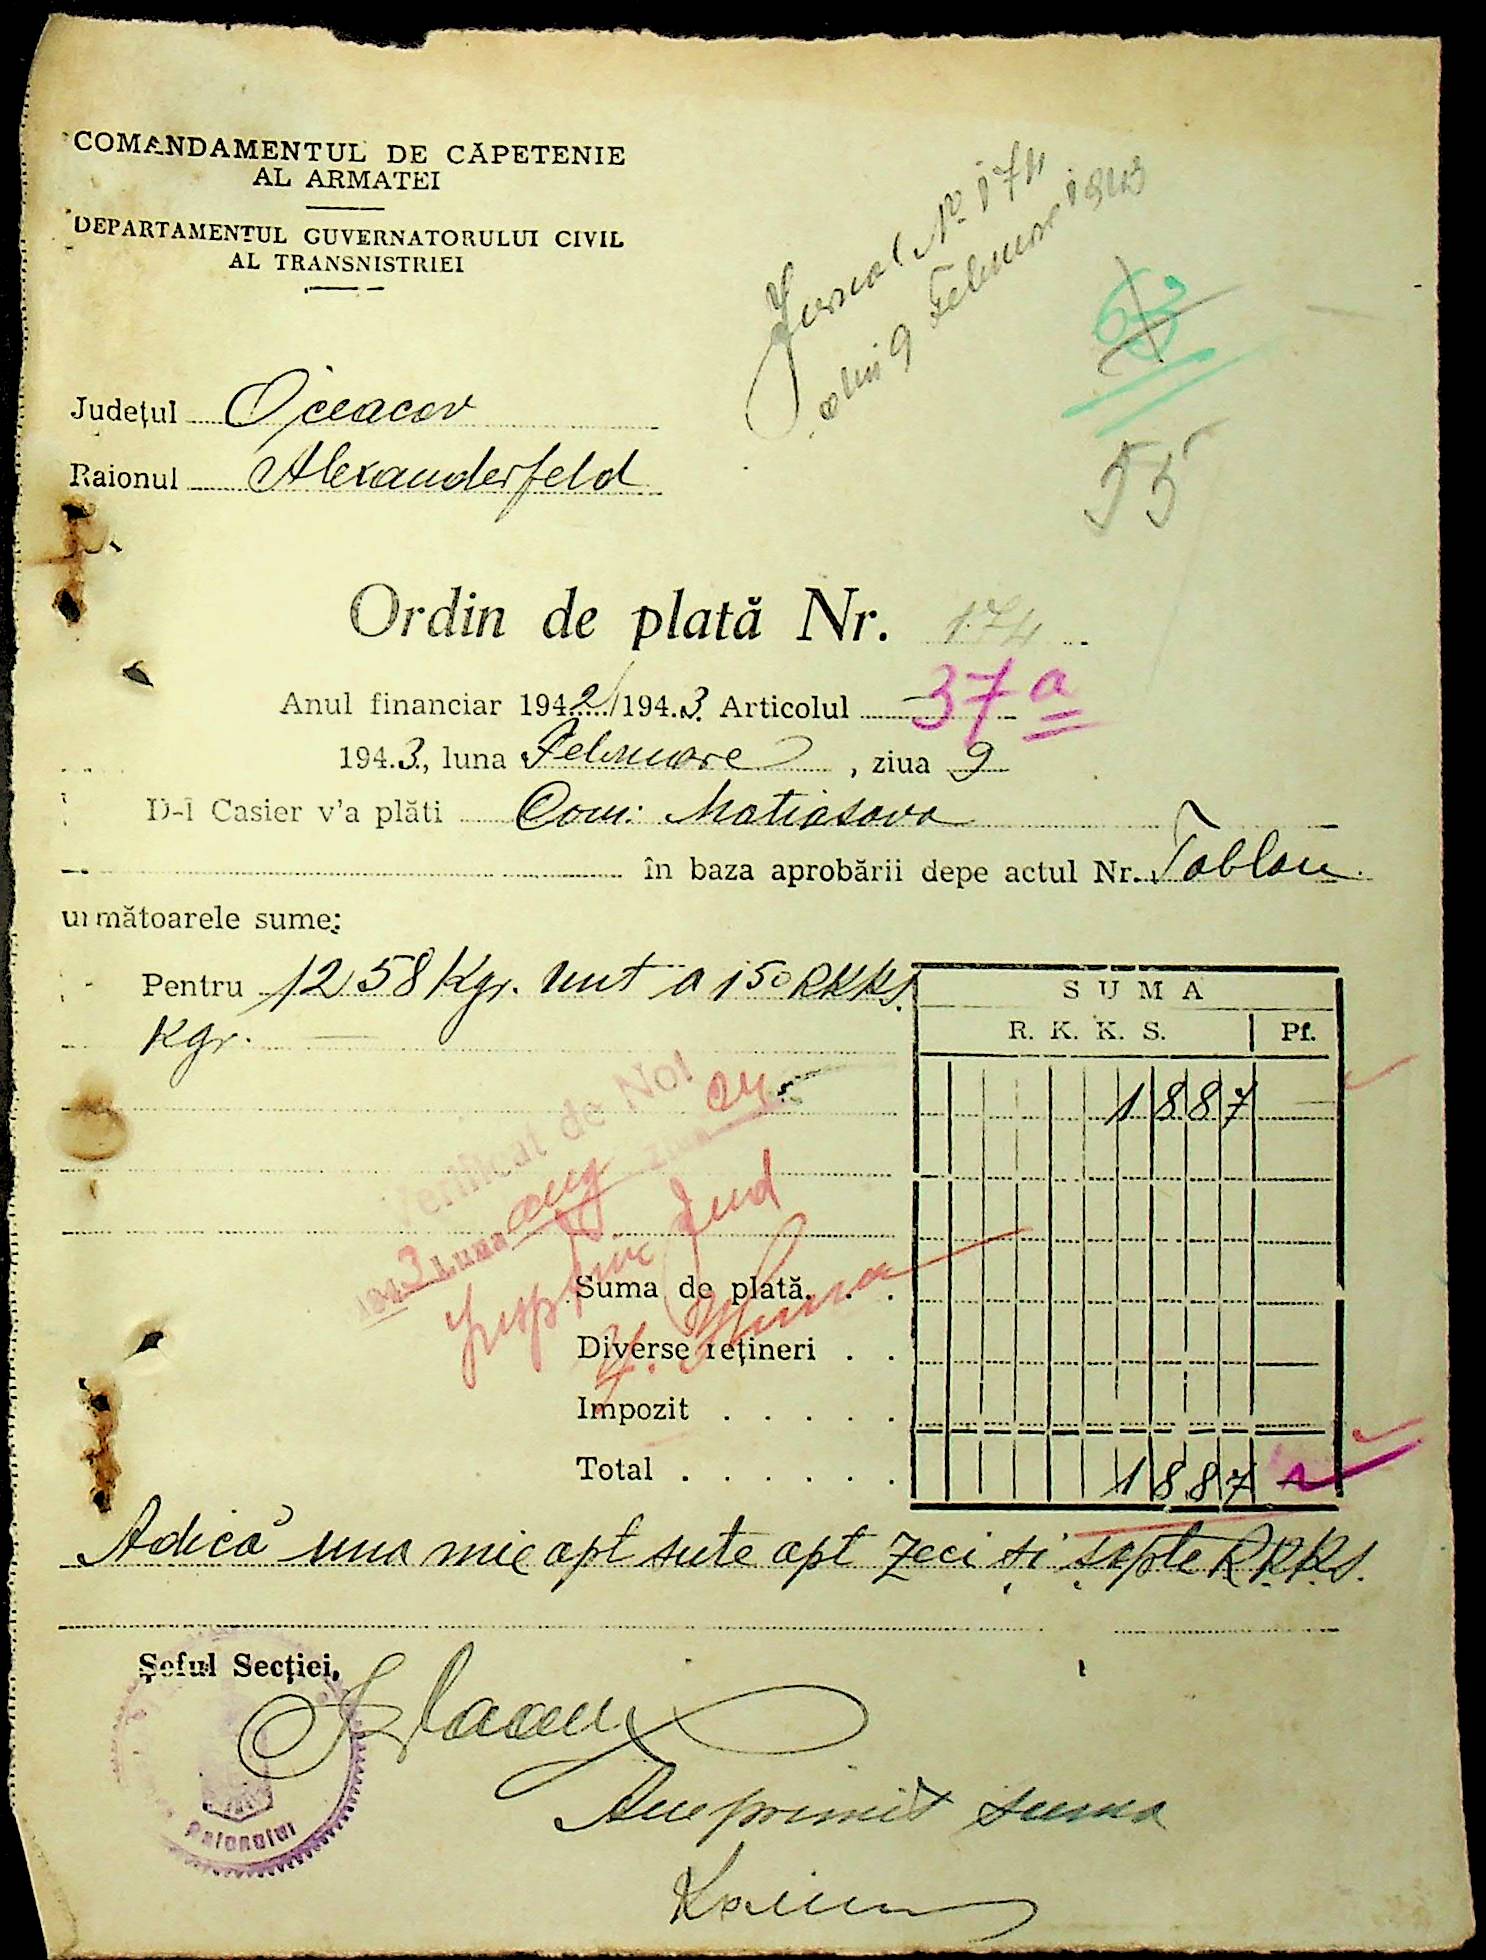 COMANDAMENTUL DE CĂPETENIE
AL ARMATEI
DEPARTAMENTUL GUVERNATORULUI CIVIL
AL TRANSNISTRIEI
Jurnal No 174
din 9 Februare 1943
63
55
Județul Oceacov
Raionul Alexanderfeld
Ordin de plată Nr. 174
Anul financiar 1942/1943 Articolul 37 a
1943, luna Februare, ziua 9
D-l Casier v'a plăti Com: Matiasova
în baza aprobării depe actul Nr. Tablou
următoarele sume:
Pentru 1258 Kgr. unt a 150 RKKS
Kgr.
SUMA
R. K. K. S. Pf.
1887
Verificat de Noi
1943 Luna aug Ziua 24
Jud
Suma de plată. . .
Diverse rețineri . .
Impozit . . . . .
Total . . . . . . 1887
Adică una mie opt sute opt zeci și șapte RKKS.
Șeful Secției,
Raionului
Am primit suma